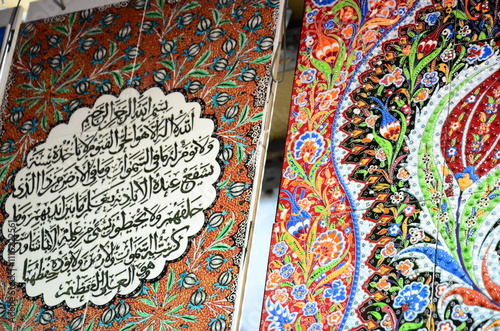 بسم الله الرحمن الرحيم
الله لا اله الا هو الحي القيوم لا تأخذه سنة
ولا نوم له ما في السموات وما في الارض من ذا الذي
يشفع عنده الا باذنه يعلم ما بين ايديهم وما
خلفهم ولا يحيطون بشئ من علمه الا بما شاء وسع
كرسيه السموات والارض ولا يؤده حفظهما
وهو العلي العظيم